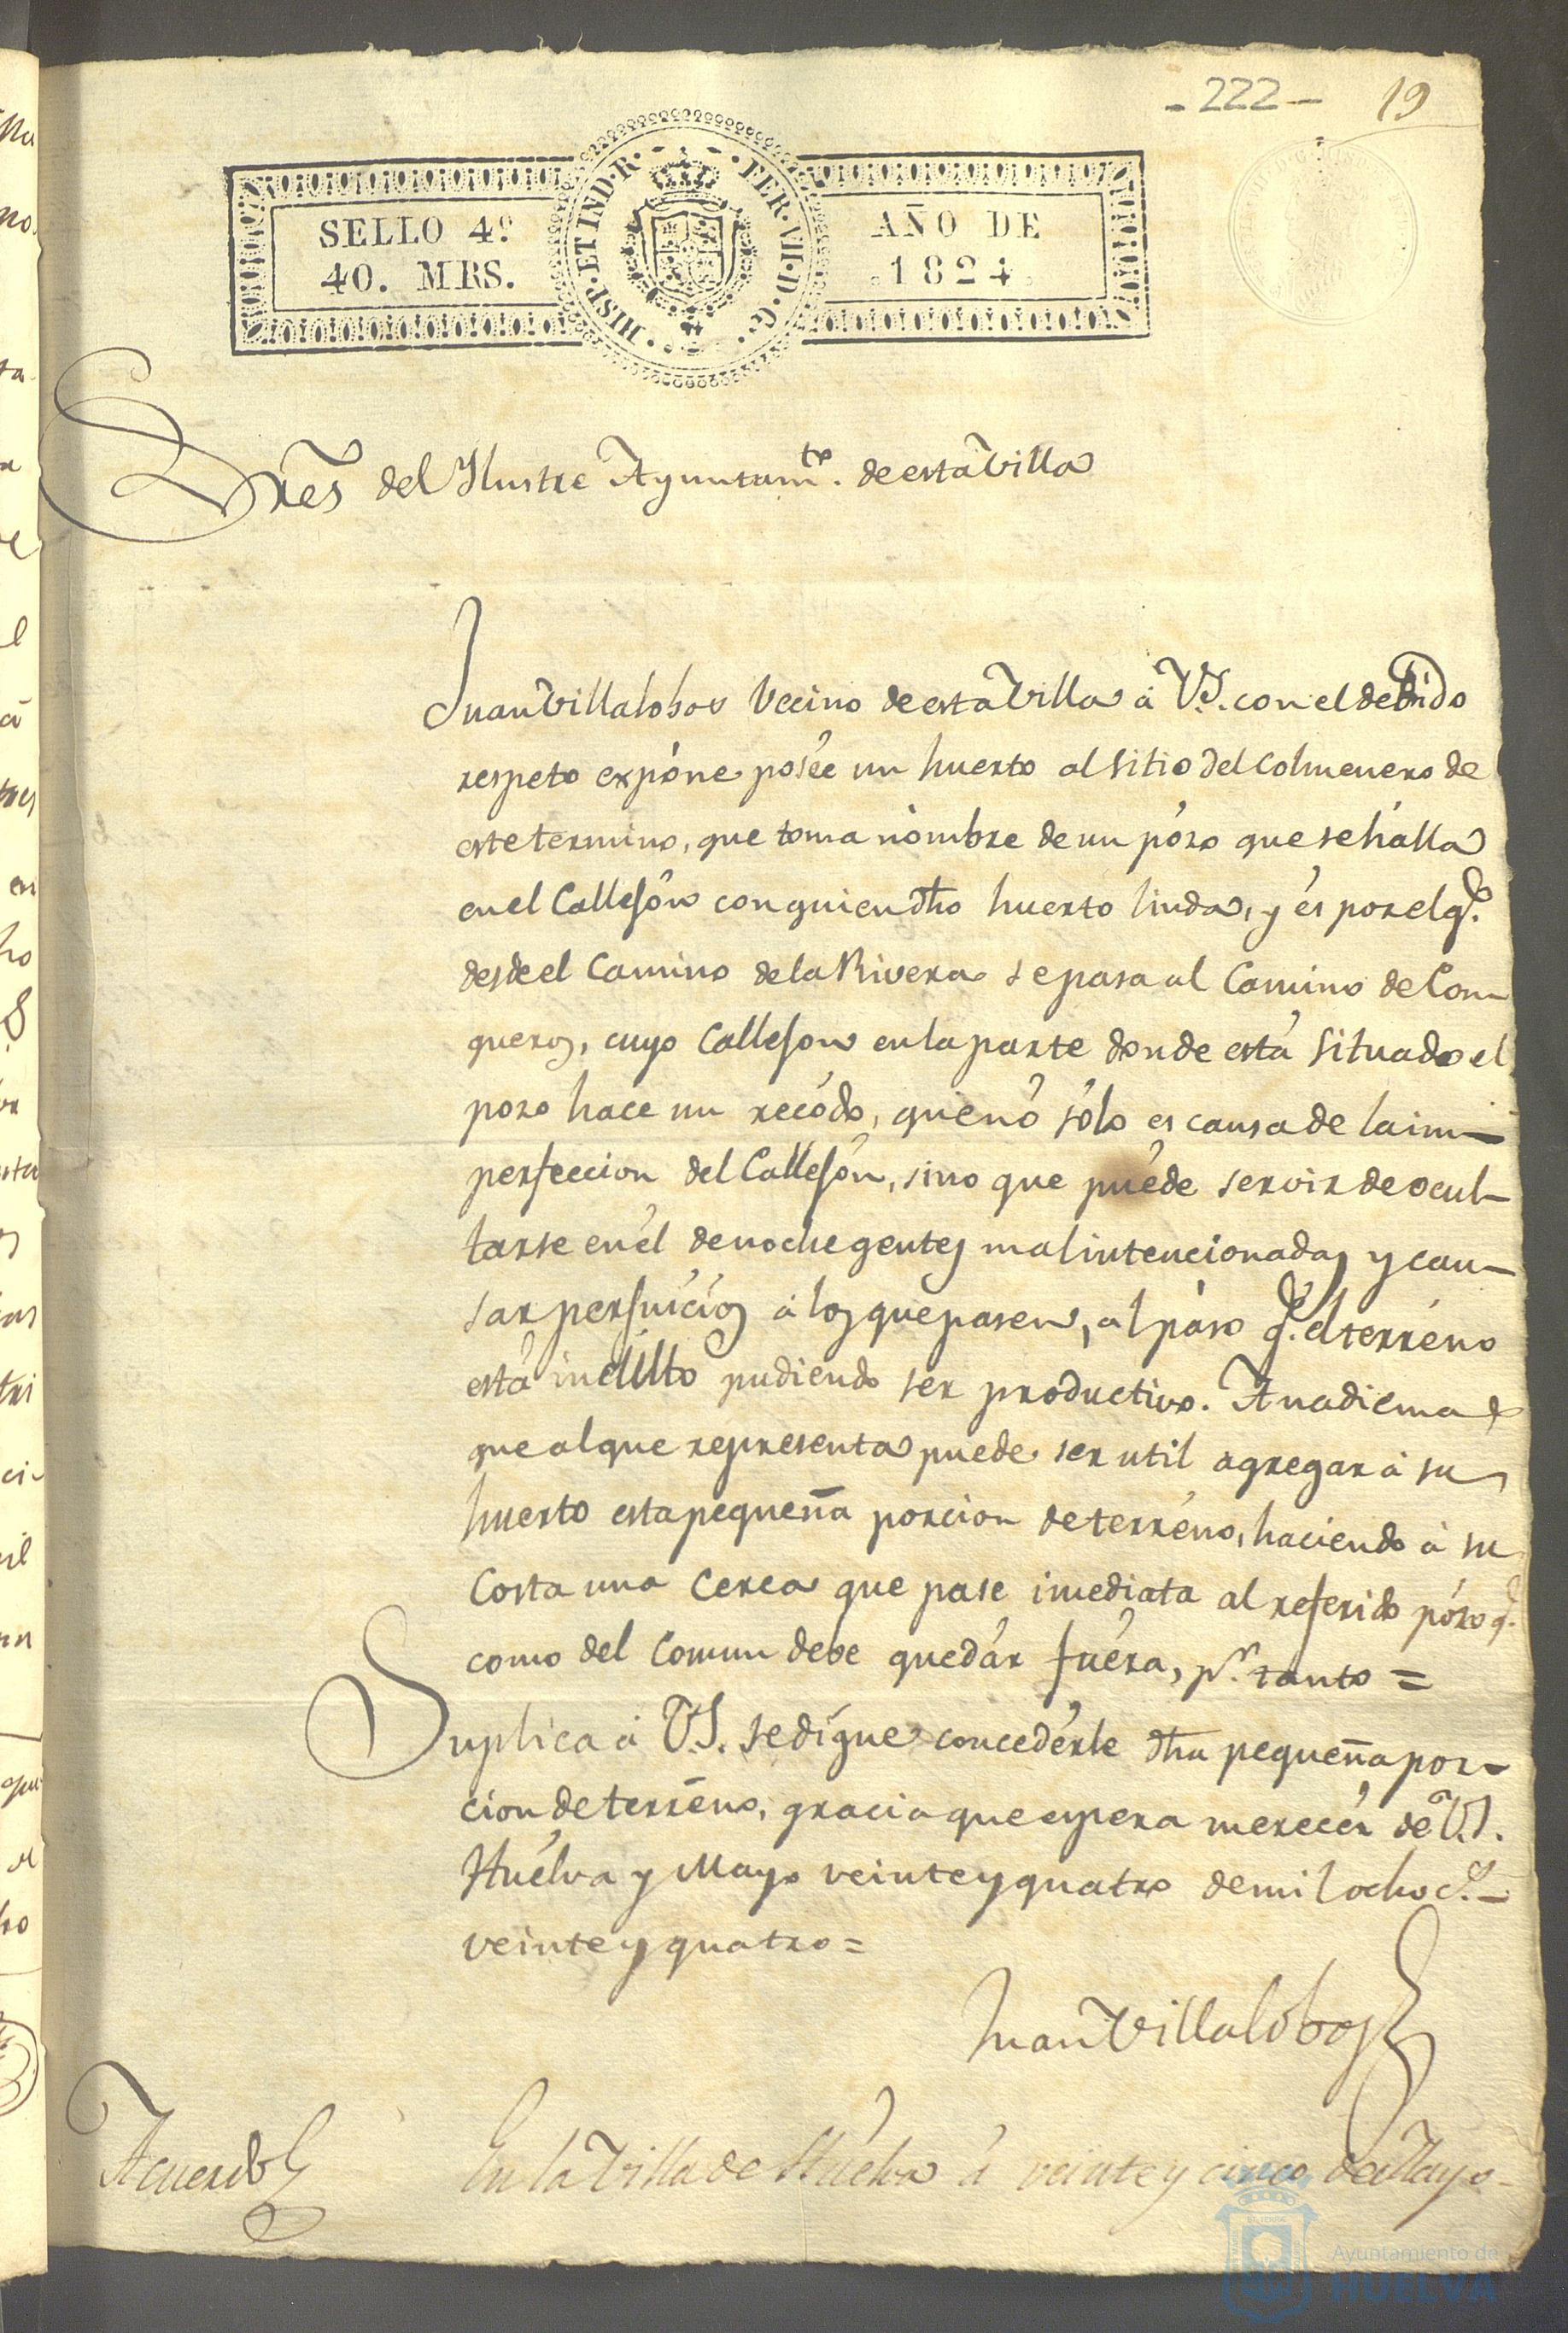 - 222 -
19
SELLO 4º
40. MRS.
HISP·ET IND·R·
·FER·VII·D·G·
AÑO DE
1824
Sres del Ylustre Ayuntamto. de esta Villa
Juan Villalobos Vecino de esta Villa á V.S. con el debido
respeto expóne poséе un huerto al sitio del Colmenero de
este termino, que toma nómbre de un pózo que se hálla
en el Callejón con quien dho huerto linda, y és por el qe.
desde el Camino de la Rivera se pasa al Camino de Con-
queros, cuyo Callejon en la parte donde está situado el
pozo hace un recódo, que nó sólo es causa de la im-
perfeccion del Callejón, sino que puéde servir de ocul-
tarse en él de noche gentes mal intencionadas y cau-
sar perjuicios á los que pasen, al páso qe. el terréno
está incúlto pudiendo ser productivo. A nadie mas
que al que representa puede ser util agregar á su
huerto esta pequeña porcion de terréno, haciendo á su
costa una cerca que pase imediata al referido pózo qe.
como del Comun debe quedár fuéra, pr. tanto =
Suplica á V.S. se dígne concedérle dha pequeña por-
cion de terréno, gracia que espera merecér de V.S.
Huélva y Mayo veinte y quatro de mil ochocs. -
veinte y quatro =
Juan Villalóbos
Acuerdo
En la Villa de Huelva á veinte y cinco de Mayo
Ayuntamiento de
HUELVA